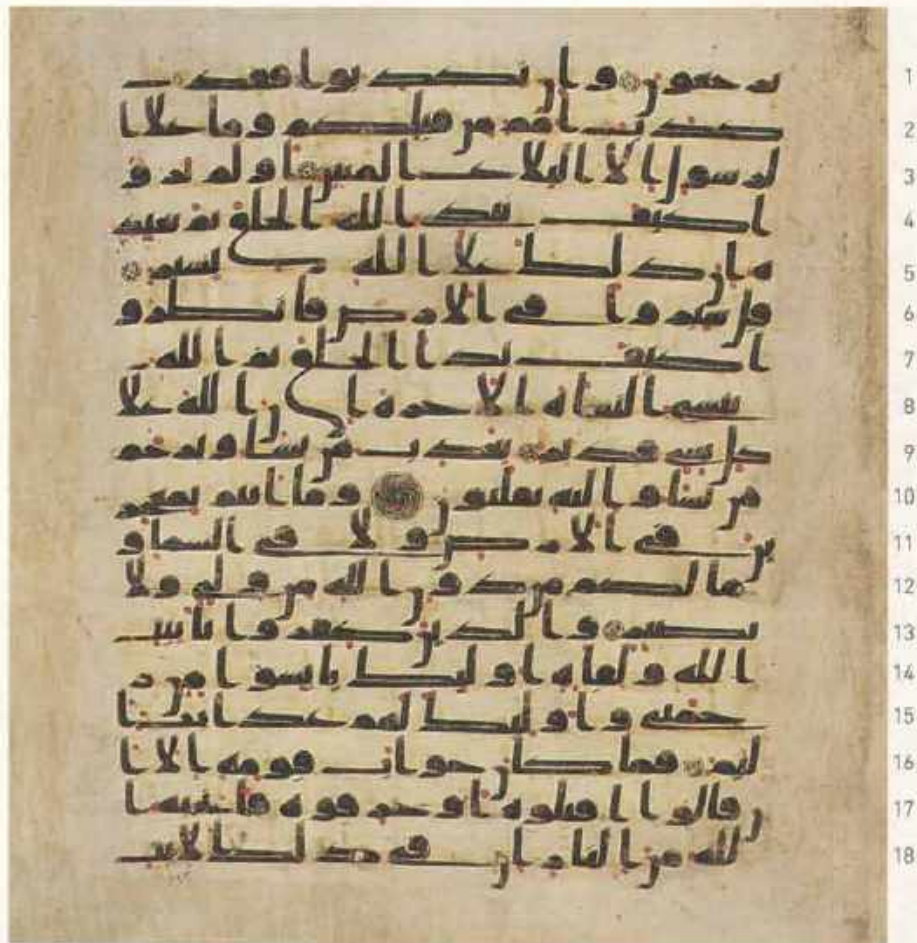 1 ترجعون وان تكذبوا فقد
2 كذب امم من قبلكم وما على ا
3 لرسول الا البلاغ المبين اولم يرو
4 ا كيف يبدئ الله الخلق ثم يعيده
5 ان ذلك على الله يسير
6 قل سيروا في الارض فانظرو
7 ا كيف بدا الخلق ثم الله
8 ينشئ النشاة الاخرة ان الله على
9 كل شيء قدير يعذب من يشا ويرحم
10 من يشا واليه تقلبون وما انتم بمعجز
11 ين في الارض ولا في السما و
12 ما لكم من دون الله من ولي ولا
13 نصير والذين كفروا بايت
14 الله ولقائه اوليك يئسوا من ر
15 حمتي واوليك لهم عذاب ا
16 ليم فما كان جواب قومه الا ا
17 ن قالوا اقتلوه او حرقوه فانجيه ا
18 لله من النار ان في ذلك لايت